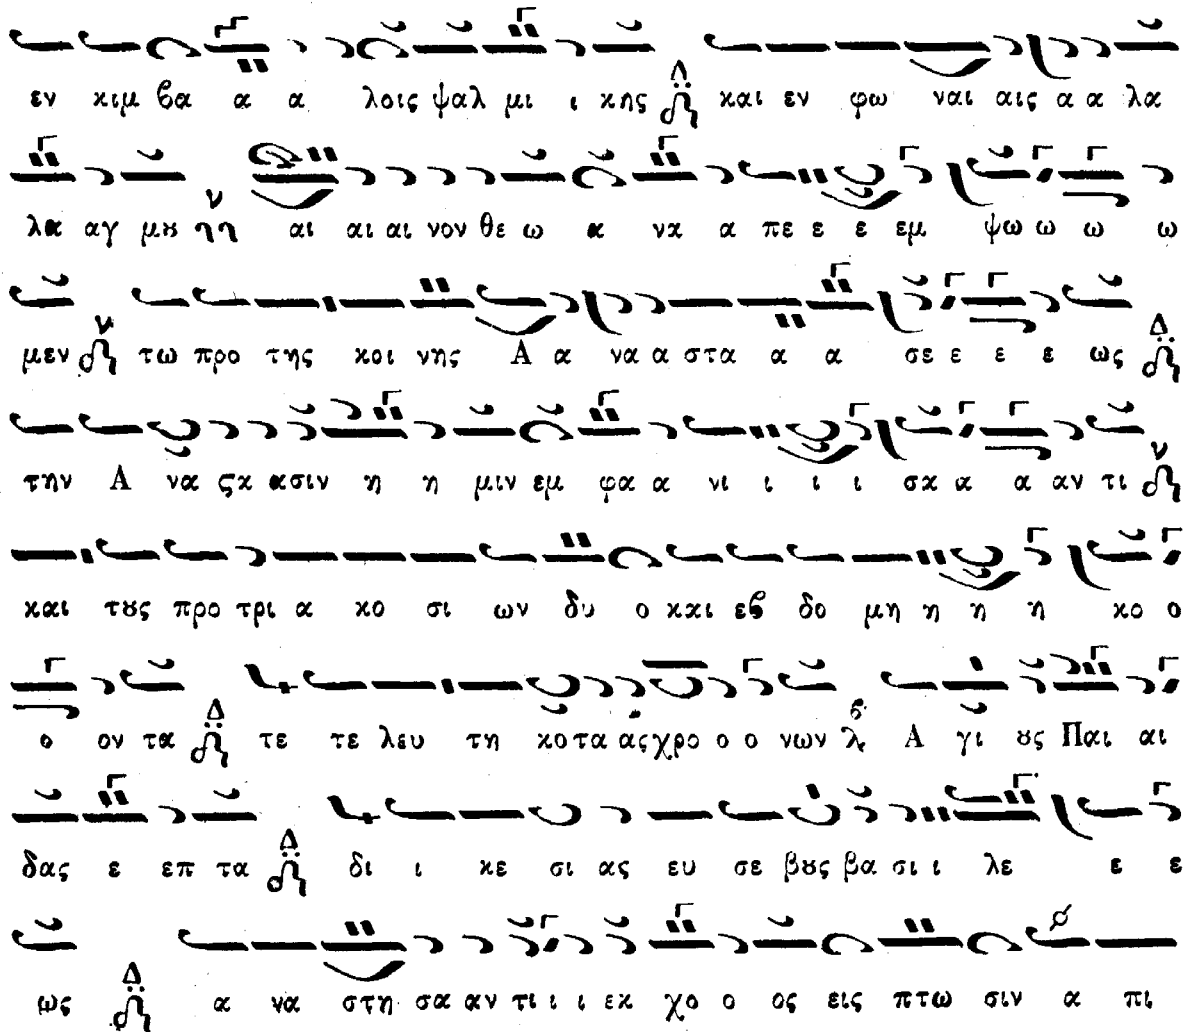 εν κιμ ϐα α α λοις ψαλ μι ι κης Δ και εν φω ναι αις α α λα
λα αγ μȣ νη αι αι αι νον θε ω α να α πε ε ε εμ ψω ω ω ω
μεν ν τω προ της κοι νης Α α να α στα α α σε ε ε ε ως Δ
την Α να ϛα ασιν η η μιν εμ φα α νι ι ι ι σα α α αν τι ν
και τȣς προ τρι α κο σι ων δυ ο και εϐ δο μη η η η κο ο
ο ον τα Δ τε τε λευ τη κο τα ας χρο ο ο νων Α γι ȣς Παι αι
δας ε επ τα Δ δι ι κε σι ας ευ σε βȣς βα σι ι λε ε ε
ως Δ α να στη σα αν τι ι ι εκ χο ο ος εις πτω σιν α πι